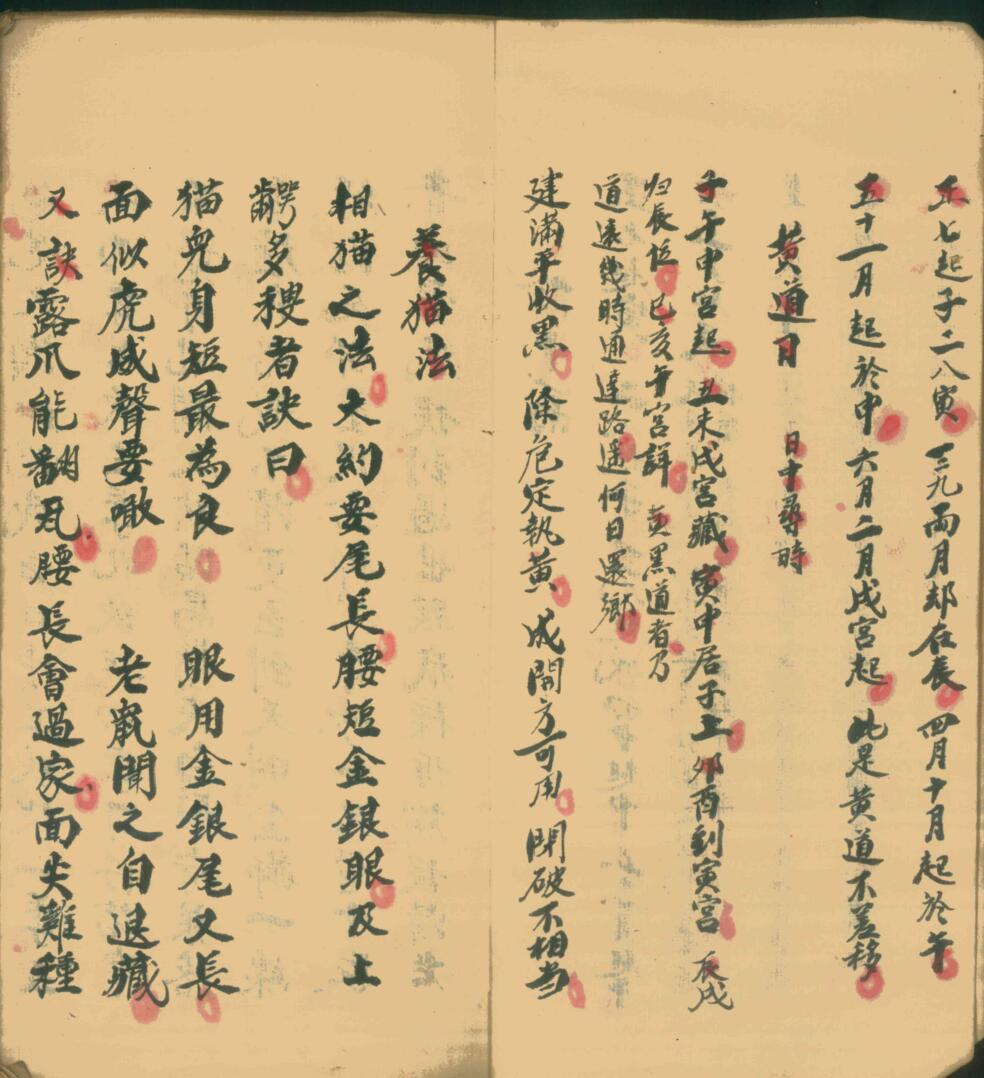 正七起子二八寅 三九兩月却在辰 四月十月起於午
五十一月起於申 六月二月戌宮起 此是黄道不差移
黄道日 日中尋時
子午申宮起 丑未戌宮藏 寅申居子上 卯酉到寅宮 辰戌
归辰位 巳亥午宮詳 黑道者乃
道遠幾時通達路遥何日還鄉
建滿平收黑 除危定執黄 成開方可用 閉破不相当
養猫法
相猫之法大約要尾長腰短金銀眼及上
齶多稜者訣曰
猫兒身短最為良 眼用金銀尾又長
面似虎威聲要噉 老鼠聞之自退藏
又訣露爪能翻瓦腰長會過家面尖雞種